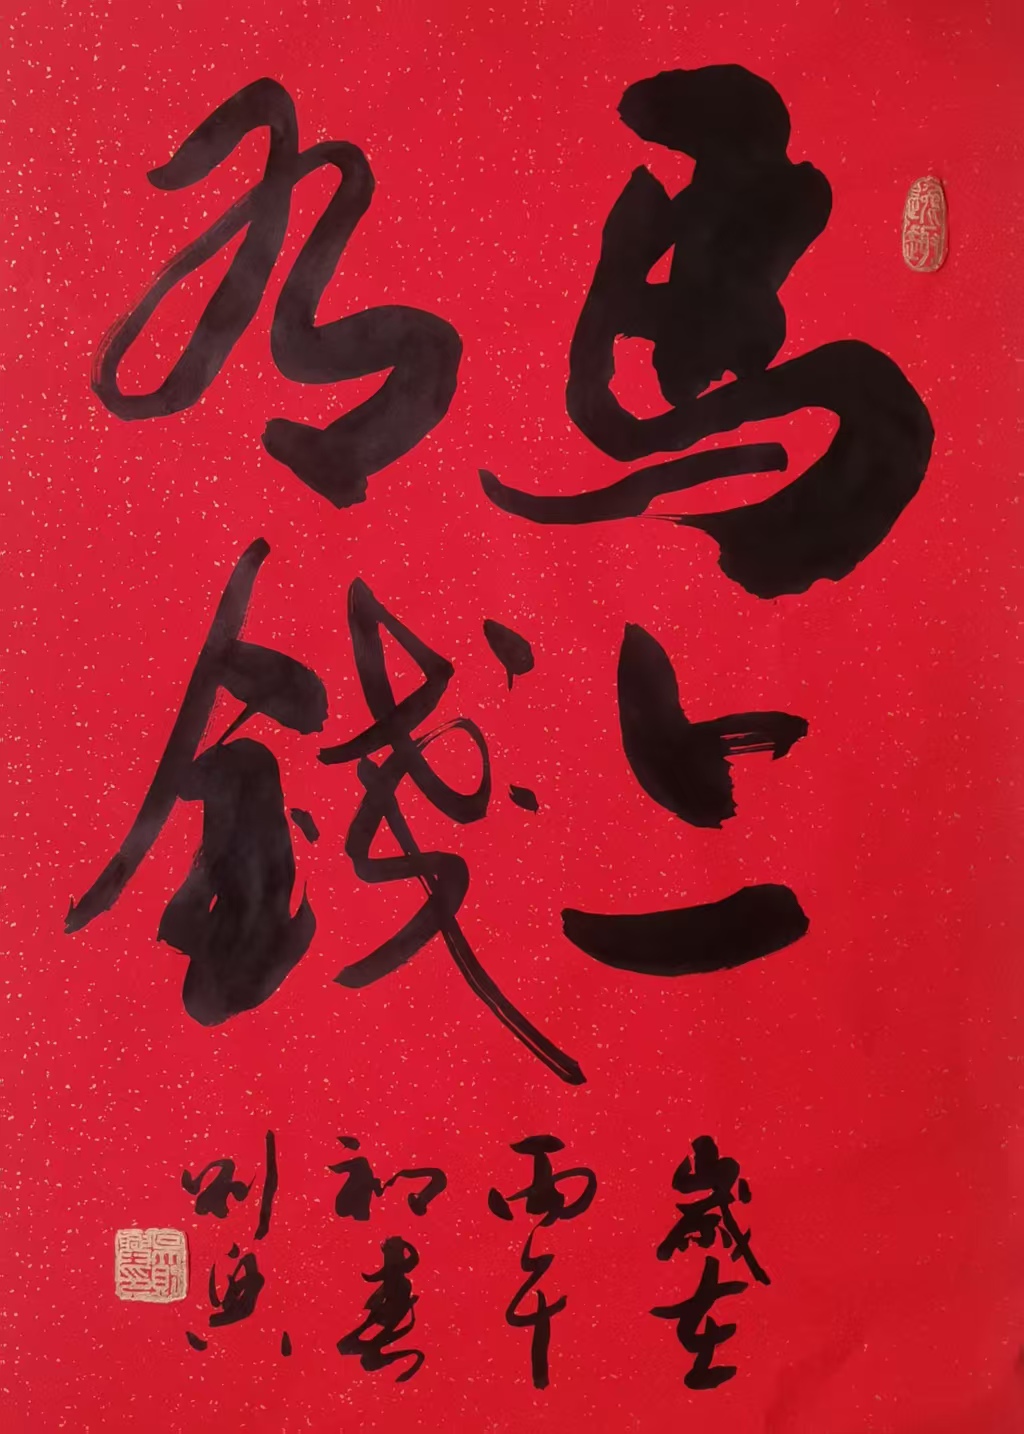 馬上
有錢
歲在
丙午
初春